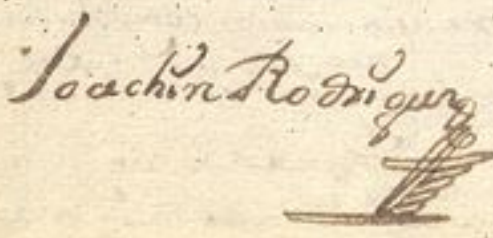 Joachin Rodriguez